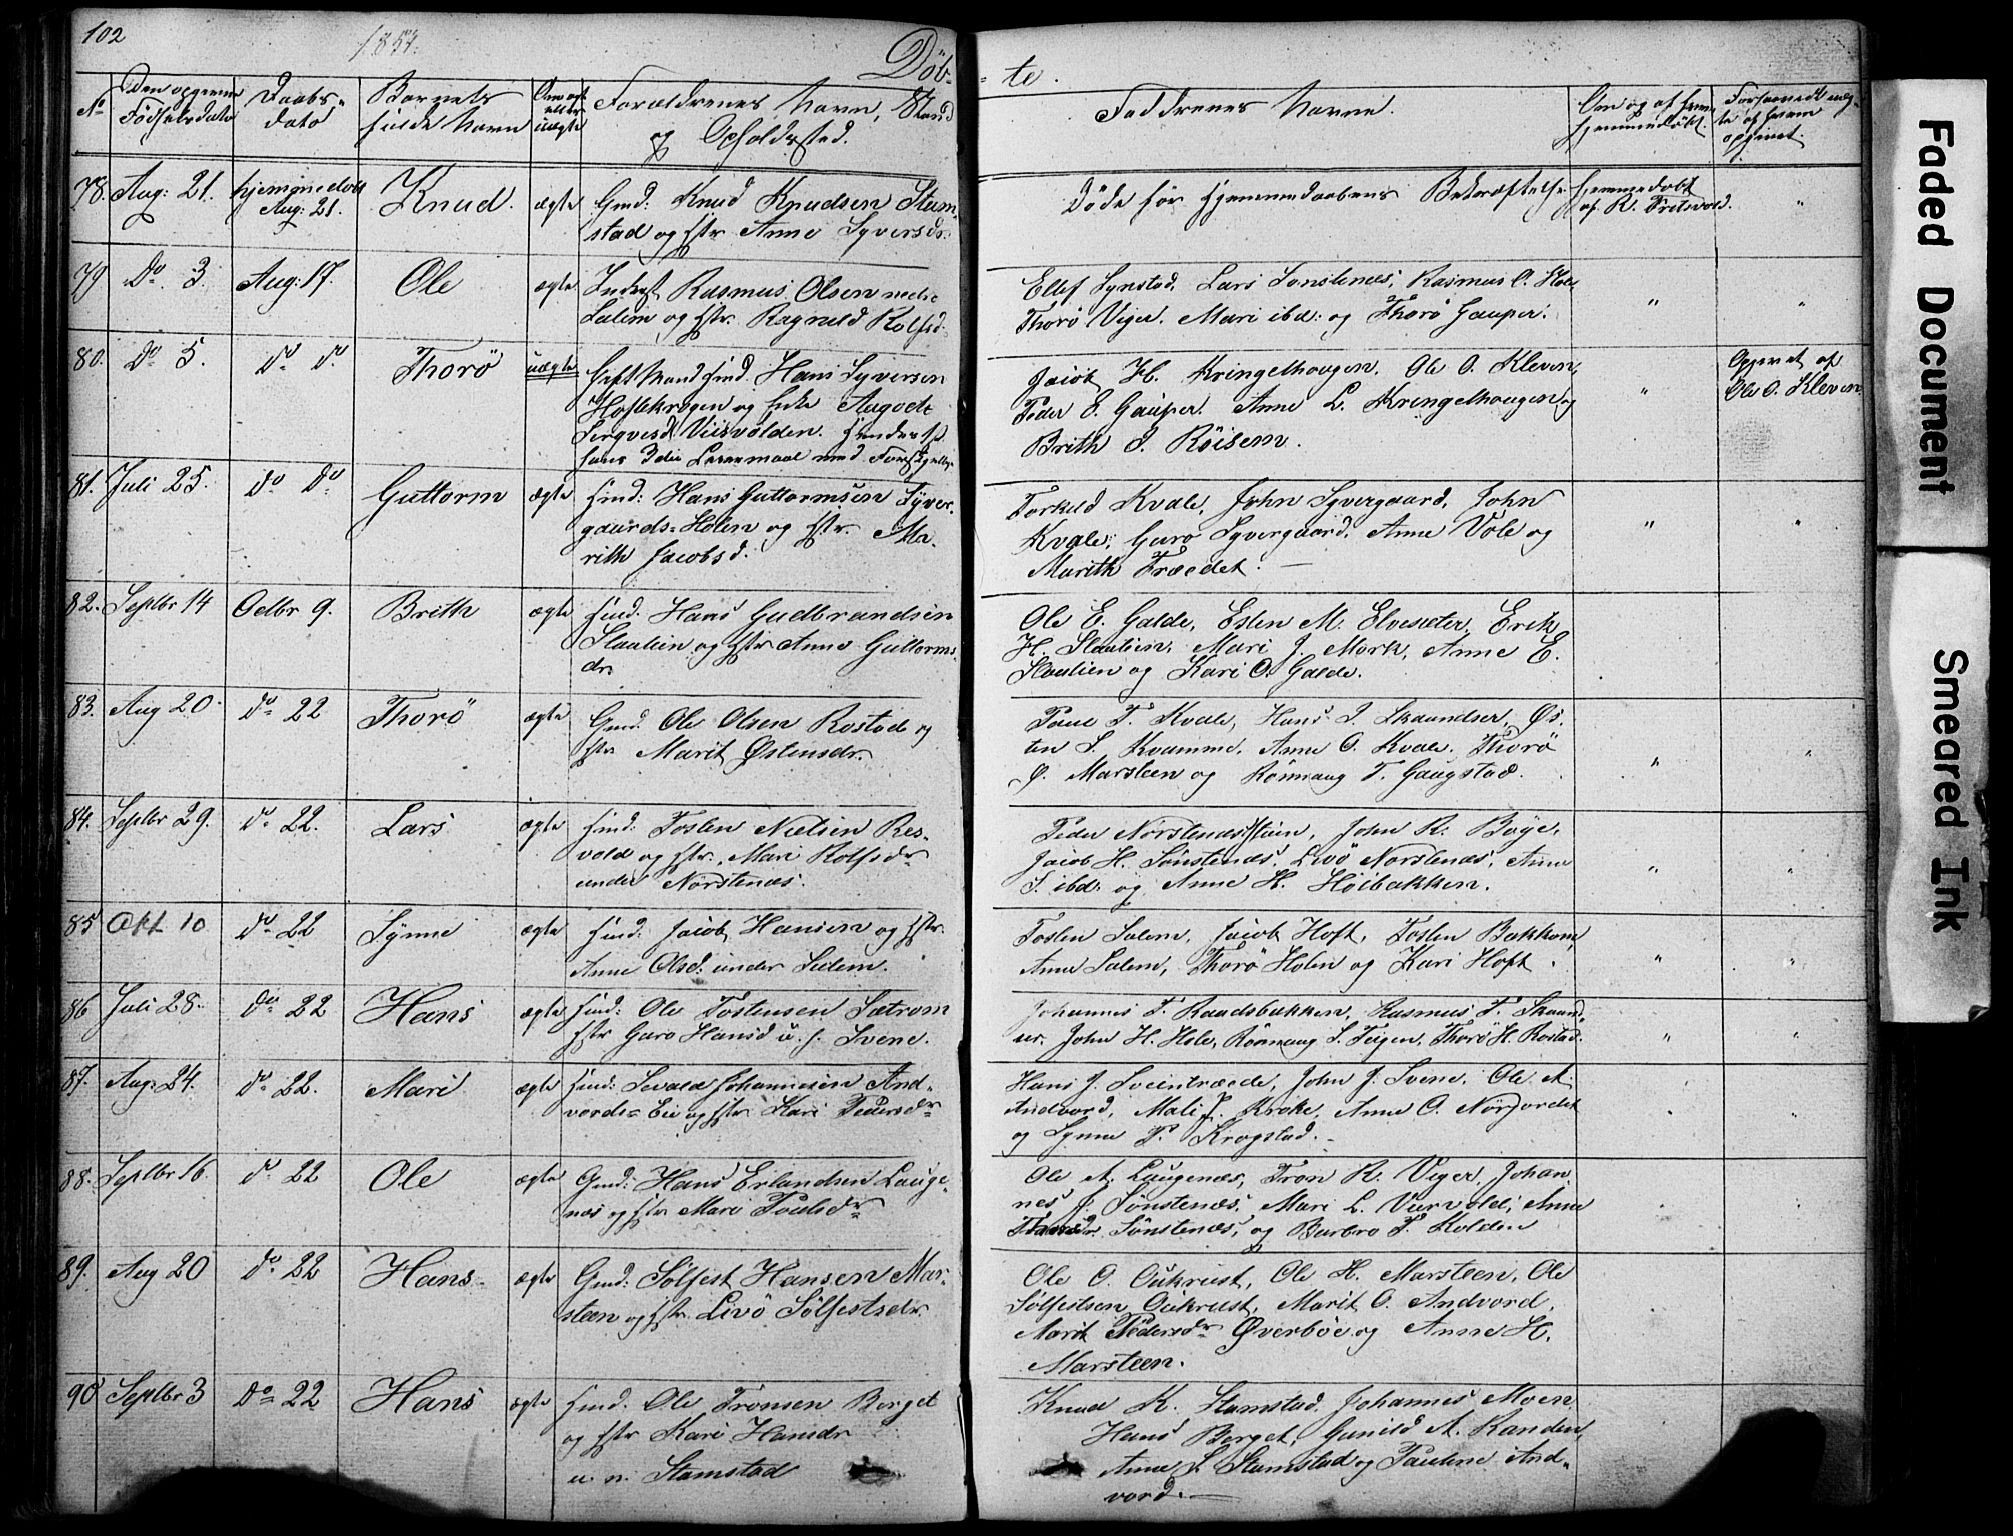 102
1857.
Döb-
te.
No
Den opgivne
Fødselsdato
Daabs-
dato
Barnets
fulde Navn
Om ægte
eller
uægte
Forældrenes Navn, Stand
og Opholdssted.
Faddrenes Navne.
Om og af hvem
hjemmedöbt.
opgivet.
78. Aug: 21. hjemmedöbt Knud. ægte Gmd: Knud Knudsen Stam-
Aug: 21.
stad og Hstr Anne Syversdr.
Döde før Hjemmedaabens Bekræftelse hjemmedöbt
af K. 
"
79 Do 3. Aug: 17. Ole ægte Inderst Rasmus Olsen nedre
Sulem og Hstr. Ragnild Rolfsd.
Ellef Synstad, Lars Sønstenæs, Rasmus O. 
Thorö Viger. Mari ibd: og Thorö Gauper.
" "
80. Do 5. Do Do Thorö uægte Gift Mand Hmd. Hans Syversen
Hoftekragen og Enke 
Viisvolden.
Jacob H. Kringelhougen, Ole O. Kleven,
Peder E. Gauper. Anne L. Kringelhougen og
Brith I. Röisem.
" Opgivet af
Ole O. Kleven
81. Juli 25. Do Do Guttorm ægte Hmd: Hans Guttormsen Syver-
gaards-Holen og Hstr. Ma-
rith Jacobsd.
Torkild Kvale, John Syvergaard, John
Kvale, Guro Syvergaard, Anne Vole og
Marith Træedet.
" "
82. Septbr 14 Octbr 9. Brith ægte Hmd: Hans Gudbrandsen
Slaalien og Hstr Anne Guttorms-
dr
Ole E. Galde, Esten M. Elvesæter, Erik
H. Slaalien, Mari J. Mork, Anne E.
Slaalien og Kari O. Galde.
83. Aug 20 Do 22 Thorö ægte Gmd. Ole Olsen Rostad og
Hstr Marit Østensdr.
Poul T. Kvale, Hans I. Skaandser, Øs-
ten S. Kvamme. Anne O. Kvale. Thorö
Ø. Marsteen og Rönnaug T. Gaugstad.
" "
84. Septbr 29. Do 22. Lars ægte Hmd: Tosten Nielsen Res-
vold og Hstr. Mari Rolfsdr
under Nörstenæs.
Peder Nörstenæs, John R. Böye,
Jacob H. Sönstenæs, Livö Nörstenæs, Anne
S. ibd: og Anne H. Höibakken.
" "
85 Okt 10 Do 22 Synne ægte Hmd: Jacob Hansen og Hstr.
Anne Olsd. under Sulem.
Tosten Sulem, Jacob Hoft, Tosten Bakkom,
Anne Sulem, Thorö Holen og Kari Hoft.
" "
86 Juli 28. Do 22 Hans ægte Hmd: Ole Tostensen Sætrom
Hstr Guro Hansd u. f. Svene.
Johannes T. Raadsbakken, Rasmus T. Skaand-
ser. John H. Hole, Rönnaug S. Teigen, Thorö H. Rostad.
" "
87. Aug: 24. Do 22. Mari ægte Hmd: Sevald Johannesen And-
vords-Eie og Hstr Kari Pedersdr
Hans J. Sveintræede, John J. Svene, Ole A.
Andvord, Mali J. Kroke, Anne O. Nörjordet
og Synne P. Krogstad.
88. Septbr 16 Do 22 Ole ægte Gmd: Hans Erlandsen Lauge-
næs og Hstr Mari Poulsdr
Ole A. Laugenæs, Tron R. Viger, Johan-
nes J. Sönstenæs, Mari L. Viervold, Anne
Sönstenæs, og Barbro P. Kolden
89. Aug 20 Do 22 Hans ægte Gmd: Sölfest Hansen Mar-
steen og Hstr Livö Sölfestsdr.
Ole O. Oukrust, Ole H. Marsteen, Ole
Sölfestsen Oukrust, Marit O. Andvord,
Marit Pedersdr Øverböe og Anne H.
Marsteen.
90 Septbr 3 Do 22 Hans ægte Hmd: Ole Tronsen Berget
og Hstr Kari Hansdr
u. n. Stamstad
Knud K. Stamstad. Johannes Moen
Hans Berget, Gunild A. Randen,
Anne S. Stamstad og Pauline And-
vord.
Faded Document
Smeared Ink